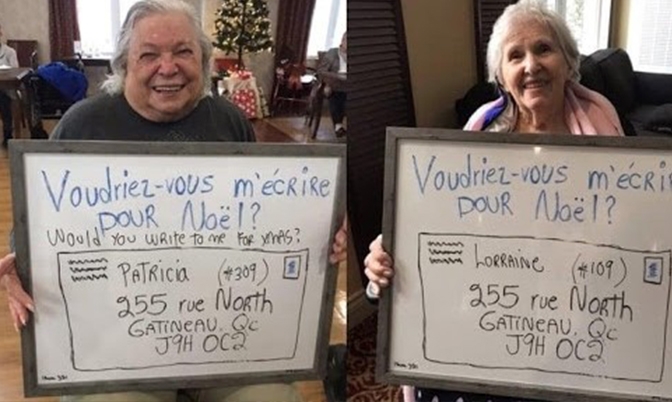 Voudriez-vous m'écrire
pour Noël?
Would you write to me for xmas?
Patricia (#309)
255 rue North
Gatineau, Qc
J9H 0C2
Voudriez-vous m'écri
pour Noël?
Lorraine (#109)
255 rue North
Gatineau, Qc
J9H 0C2